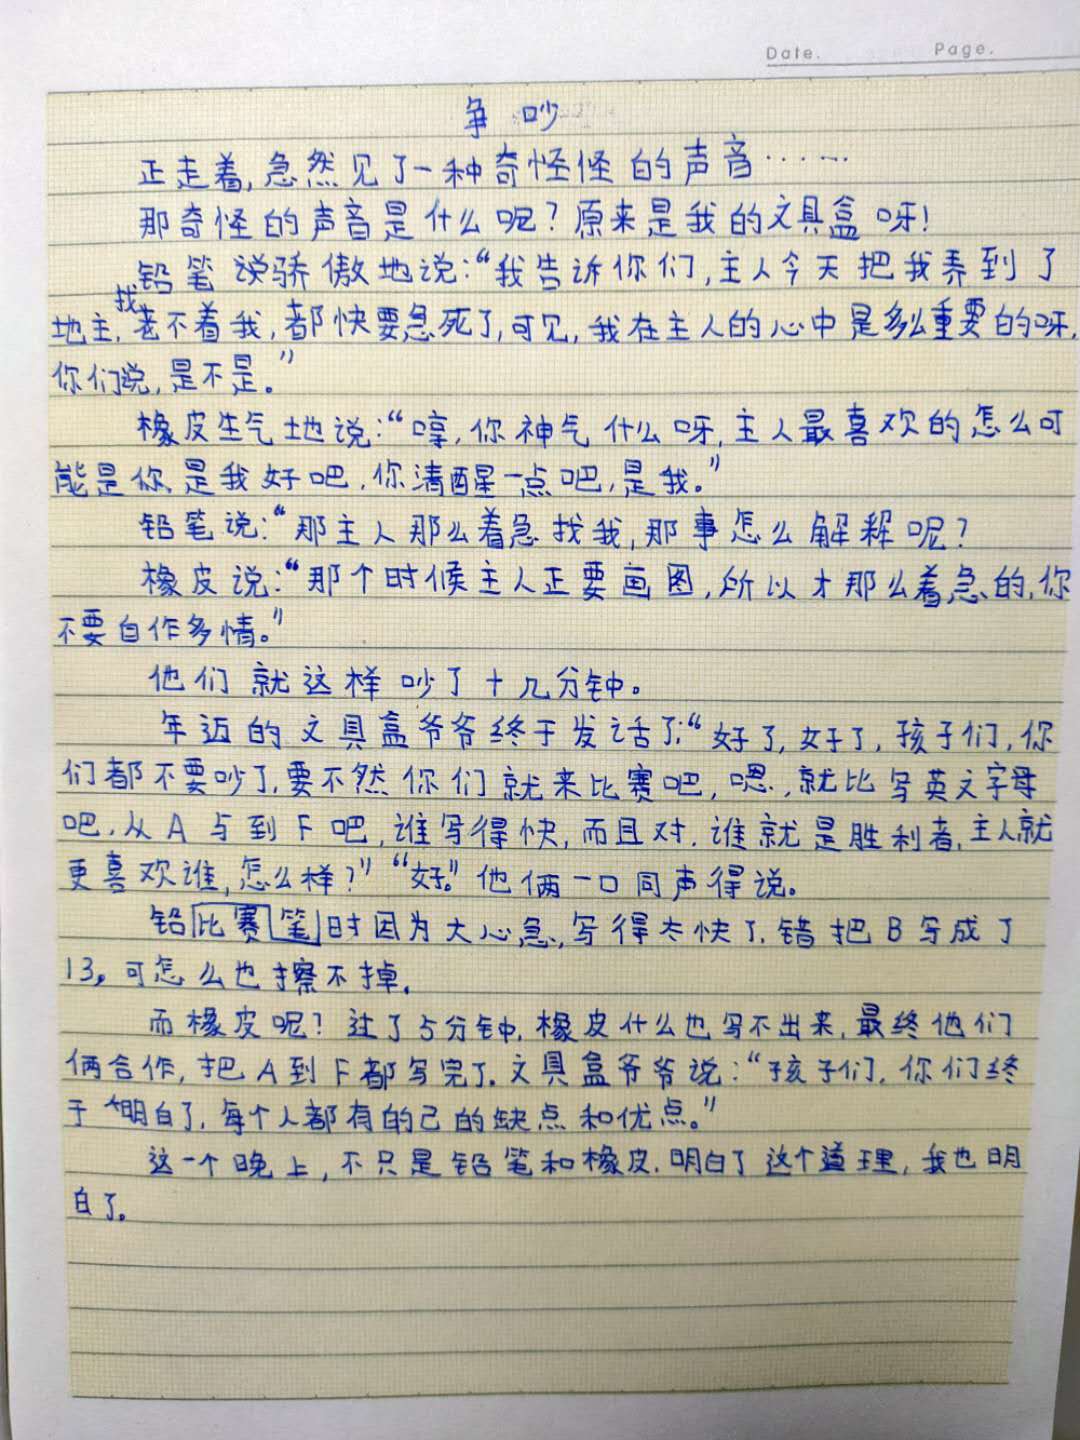 Date. Page.
争吵
正走着,急然见了一种奇怪怪的声音……
那奇怪的声音是什么呢?原来是我的文具盒呀!
铅笔说骄傲地说:“我告诉你们,主人今天把我弄到了
地主,找老不着我,都快要急死了,可见,我在主人的心中是多么重要的呀,
你们说,是不是。”
橡皮生气地说:“哼,你神气什么呀,主人最喜欢的怎么可
能是你,是我好吧,你清醒一点吧,是我。”
铅笔说:“那主人那么着急找我,那事怎么解释呢?
橡皮说:“那个时候主人正要画图,所以才那么着急的,你
不要自作多情。”
他们就这样吵了十几分钟。
年迈的文具盒爷爷终于发话了:“好了,好了,孩子们,你
们都不要吵了,要不然你们就来比赛吧,嗯,就比写英文字母
吧,从A与到F吧,谁写得快,而且对,谁就是胜利者,主人就
更喜欢谁,怎么样?”“好。”他俩一口同声得说。
铅比赛笔时因为大心急,写得太快了,错把B写成了
13,可怎么也擦不掉.
而橡皮呢?过了5分钟,橡皮什么也写不出来,最终他们
俩合作,把A到F都写完了.文具盒爷爷说:“孩子们,你们终
于明白了,每个人都有的己的缺点和优点。”
这一个晚上,不只是铅笔和橡皮,明白了这个道理,我也明
白了。